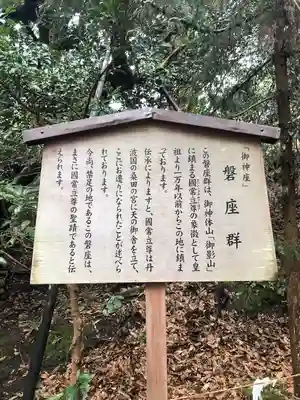 「御神座」
磐座群
この磐座群は、御神体山（御影山）
に鎮まる國常立尊の象徴として皇
祖より一万年以前からこの地に鎮ま
っております。
伝承によりますと、國常立尊は丹
波国の桑田の宮に天の御舎を立て、
ここにお遷りになられたことが述べら
れております。
今尚、禁足の地であるこの磐座は、
まさに國常立尊の聖蹟であると伝
えられます。